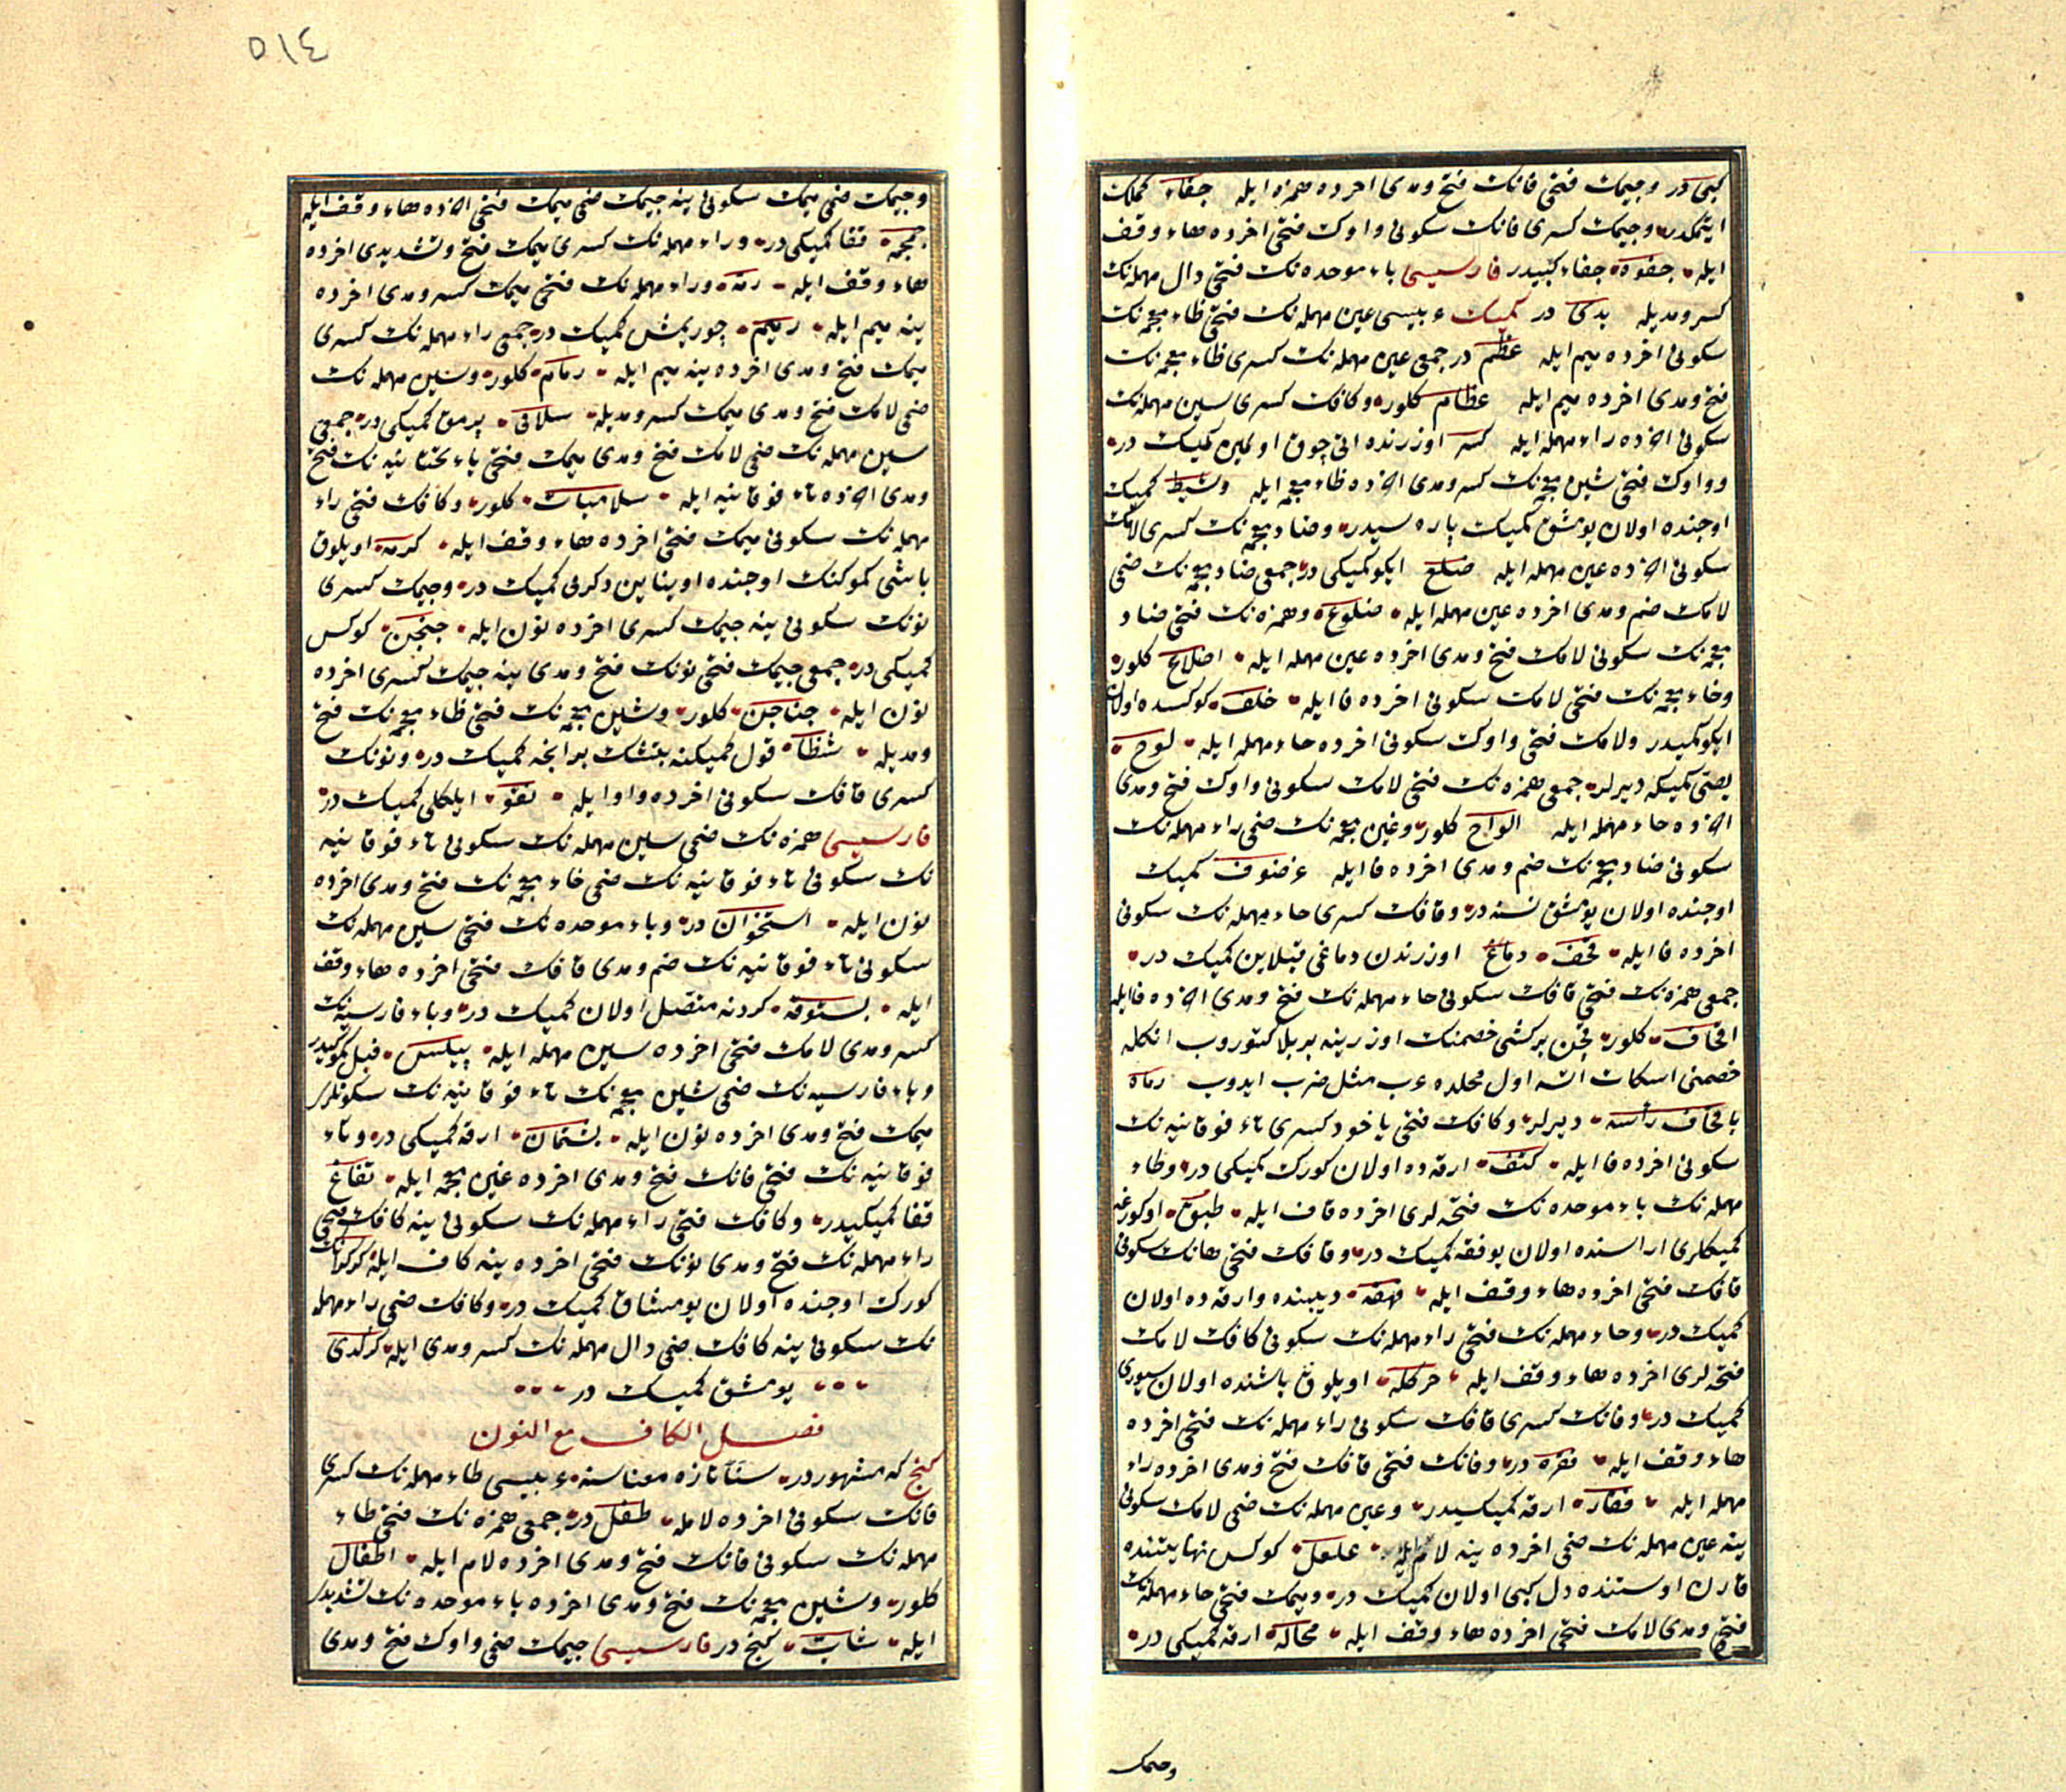 كبى در وجيمك فتحى فانك فتح ومدى اخرده همزه ايله جفاء كملك
ايتمكدر وجيمك كسرى فانك سكونى واوك فتحى اخرده هاء وقف
ايله جفوه جفاء كبيدر فارسيسى باء موحده نك فتحى دال مهمله نك
كسر ومديله بدى در كميك عربيسى عين مهمله نك فتحى ظاء معجمه نك
سكونى اخرده ميم ايله عظم در جمعى عين مهمله نك كسرى ظاء معجمه نك
فتح ومدى اخرده ميم ايله عظام كلور وكافك كسرى سين مهمله نك
سكونى اخرده راء مهمله ايله كسر اوزرنده اتى چوق اولمين كميك در
وواوك فتحى شين معجمه نك كسر ومدى اخرده ظاء معجمه ايله وشيظ كميك
اوجنده اولان يومشق كميك پاره سيدر وضاد معجمه نك كسرى لامك
سكونى اخرده عين مهمله ايله ضلع ايكو كميكى در جمعى ضاد معجمه نك ضمى
لامك ضم ومدى اخرده عين مهمله ايله ضلوع وهمزه نك فتحى ضاد
معجمه نك سكونى لامك فتح ومدى اخرده عين مهمله ايله اضلاع كلور
وخاء معجمه نك فتحى لامك سكونى اخرده فا ايله خلف كوكسده اولان
ايكو كميكدر ولامك فتحى واوك سكونى اخرده حاء مهمله ايله لوح
يصى كميكه ديرلر جمعى همزه نك فتحى لامك سكونى واوك فتح ومدى
اخرده حاء مهمله ايله الواح كلور وغين معجمه نك ضمى راء مهمله نك
سكونى ضاد معجمه نك ضم ومدى اخرده فا ايله غرضوف كميك
اوجنده اولان يومشق نسنه در وقافك كسرى حاء مهمله نك سكونى
اخرده فا ايله قحف دماغ اوزرندن دماغى قپلاين كميك در
جمعى همزه نك فتحى قافك سكونى حاء مهمله نك فتح ومدى اخرده فا ايله
اقحاف كلور قچن بر كشى خصمنك اوزرينه بر بلا كتوروب انكله
خصمنى اسكات اتسه اول محلده عرب مثل ضرب ايدوب رماه
باقحاف رأسه ديرلر وكافك فتحى ياخود كسرى تاء فوقانيه نك
سكونى اخرده فا ايله كتف ارقه ده اولان كورك كميكى در وطاء
مهمله نك باء موحده نك فتحه لرى اخرده قاف ايله طبق اوكورغه
كميكلرى اراسنده اولان يوفقه كميك در وقافك فتحى هانك سكونى
قافك فتحى اخرده هاء وقف ايله قهقه ديبنده وارقه ده اولان
كميك در وحاء مهمله نك فتحى راء مهمله نك سكونى كافك لامك
فتحه لرى اخرده هاء وقف ايله حركله اويلوق باشنده اولان سيورى
كميك در وفانك كسرى قافك سكونى راء مهمله نك فتحى اخرده
هاء وقف ايله فقره در وفانك فتحى قافك فتح ومدى اخرده راء
مهمله ايله فقار ارقه كميكسيدر وعين مهمله نك ضمى لامك سكونى
ينه عين مهمله نك ضمى اخرده ينه لام ايله علعل كوكس نهايتنده
قارن اوستنده دل كبى اولان كميك در وميمك فتحى حاء مهمله نك
فتح ومدى لامك فتحى اخرده هاء وقف ايله محاله ارقه كميكى در
وجمك
٥١٤
وجيمك ضمى ميمك سكونى ينه جيمك ضمى ميمك فتحى اخرده هاء وقف ايله
جمجمه قفا كميكى در وراء مهمله نك كسرى ميمك فتح وتشديدى اخرده
هاء وقف ايله رمه وراء مهمله نك فتحى ميمك كسر ومدى اخرده
ينه ميم ايله رميم چوريمش كميك در جمعى راء مهمله نك كسرى
ميمك فتح ومدى اخرده ينه ميم ايله رمام كلور وسين مهمله نك
ضمى لامك فتح ومدى ميمك كسر ومديله سلامى پرمق كميكى در جمعى
سين مهمله نك ضمى لامك فتح ومدى ميمك فتحى ياء تحتانيه نك فتح
ومدى اخرده تاء فوقانيه ايله سلاميات كلور وكافك فتحى راء
مهمله نك سكونى ميمك فتحى اخرده هاء وقف ايله كرمه اويلوق
باشى كموكنك اوجنده اوينايين دكرمى كميك در وجيمك كسرى
نونك سكونى ينه جيمك كسرى اخرده نون ايله جنجن كوكس
كميكى در جمعى جيمك فتحى نونك فتح ومدى ينه جيمك كسرى اخرده
نون ايله جناجن كلور وشين معجمه نك فتحى ظاء معجمه نك فتح
ومديله شظا قول كميكنه بتشك بر انجه كميك در ونونك
كسرى قافك سكونى اخرده واو ايله نقو ايلكلى كميك در
فارسيسى همزه نك ضمى سين مهمله نك سكونى تاء فوقانيه
نك سكونى تاء فوقانيه نك ضمى خاء معجمه نك فتح ومدى اخرده
نون ايله استخوان در وباء موحده نك فتحى سين مهمله نك
سكونى تاء فوقانيه نك ضم ومدى قافك فتحى اخرده هاء وقف
ايله بستوقه كردنه متصل اولان كميك در وباء فارسيه نك
كسر ومدى لامك فتحى اخرده سين مهمله ايله پيلس فيل كموكيدر
وباء فارسيه نك ضمى شين معجمه نك تاء فوقانيه نك سكونلرى
ميمك فتح ومدى اخرده نون ايله پشتمان ارقه كميكى در وتاء
فوقانيه نك فتحى فانك فتح ومدى اخرده غين معجمه ايله تفاغ
قفا كميكيدر وكافك فتحى راء مهمله نك سكونى ينه كافك فتحى
راء مهمله نك فتح ومدى نونك فتحى اخرده ينه كاف ايله كركرانك
كورك اوجنده اولان يومشاق كميك در وكافك ضمى راء مهمله
نك سكونى ينه كافك ضمى دال مهمله نك كسر ومدى ايله كركدى
يومشق كميك در
فصل الكاف مع النون
كنج كه مشهوردر سنّا تازه معناسنه عربيسى طاء مهمله نك كسرى
فانك سكونى اخرده لامله طفل در جمعى همزه نك فتحى طاء
مهمله نك سكونى فانك فتح ومدى اخرده لام ايله اطفال
كلور وشين معجمه نك فتح ومدى اخرده باء موحده نك تشديدى
ايله شاب كنج در فارسيسى جيمك ضمى واوك فتح ومدى